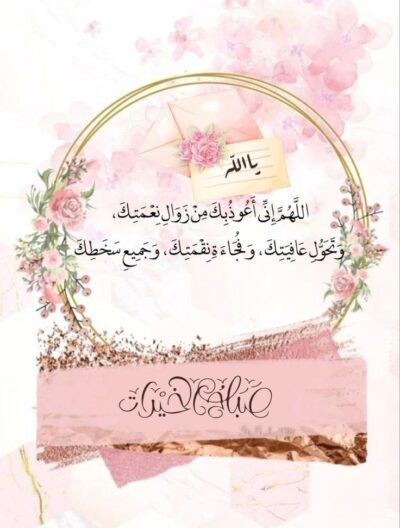 يا الله
اللَّهُمَّ إِنِّي أَعُوذُ بِكَ مِنْ زَوَالِ نِعْمَتِكَ،
وَتَحَوُّلِ عَافِيَتِكَ، وَفُجَاءَةِ نِقْمَتِكَ، وَجَمِيعِ سَخَطِكَ
صباح الخيرات